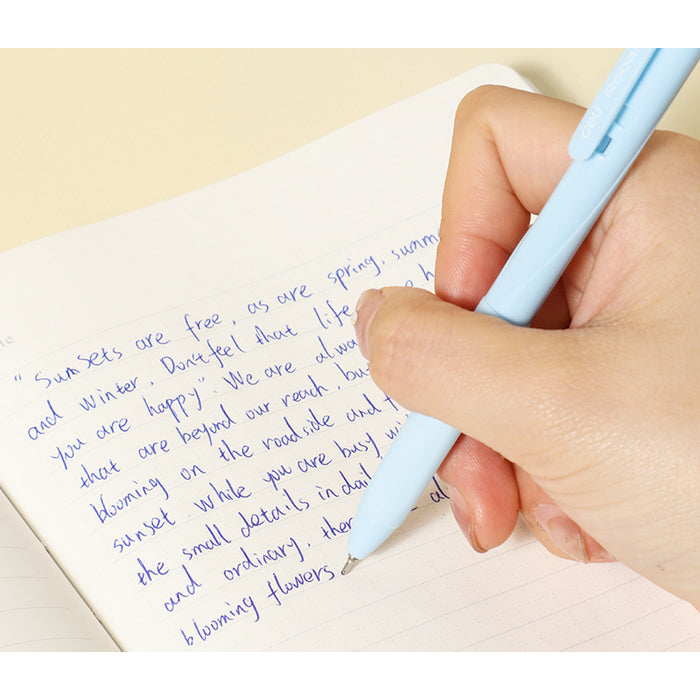 "Sumsets are free, as are spring, summ
and winter. Don't feel that life
you are happy". We are alwa
that are beyond our reach, bu
blooming on the roadside and t
sunset. While you are busy wi
the small details in dail
and ordinary, ther al
blooming flowers
deli